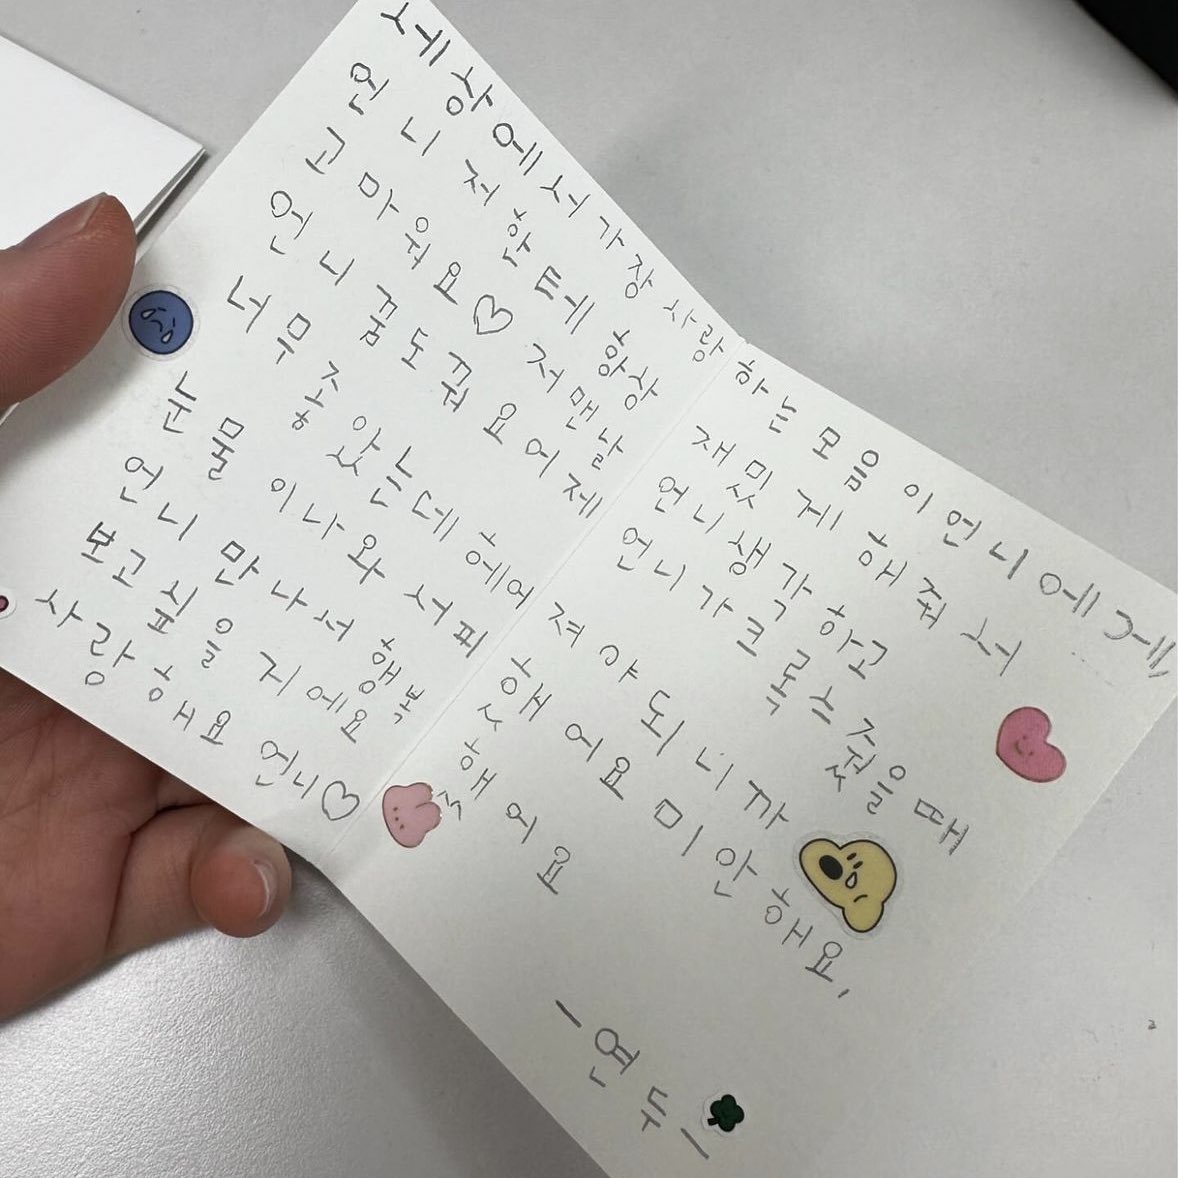 세상에서 가장 사랑하는 모음이언니에게,
언니 저한테 항상 재밌게 해줘서
고마워요♡ 저 맨날 언니생각하고
언니 꿈도 꿔요 어제 언니가 크록스 줬을때
너무 좋았는데 헤어져야 되니까
눈물이 나와서 피햇어요 미안해요,
언니 만나서 행복했어요
보고싶을 거에요
사랑해요 언니♡
-연두-